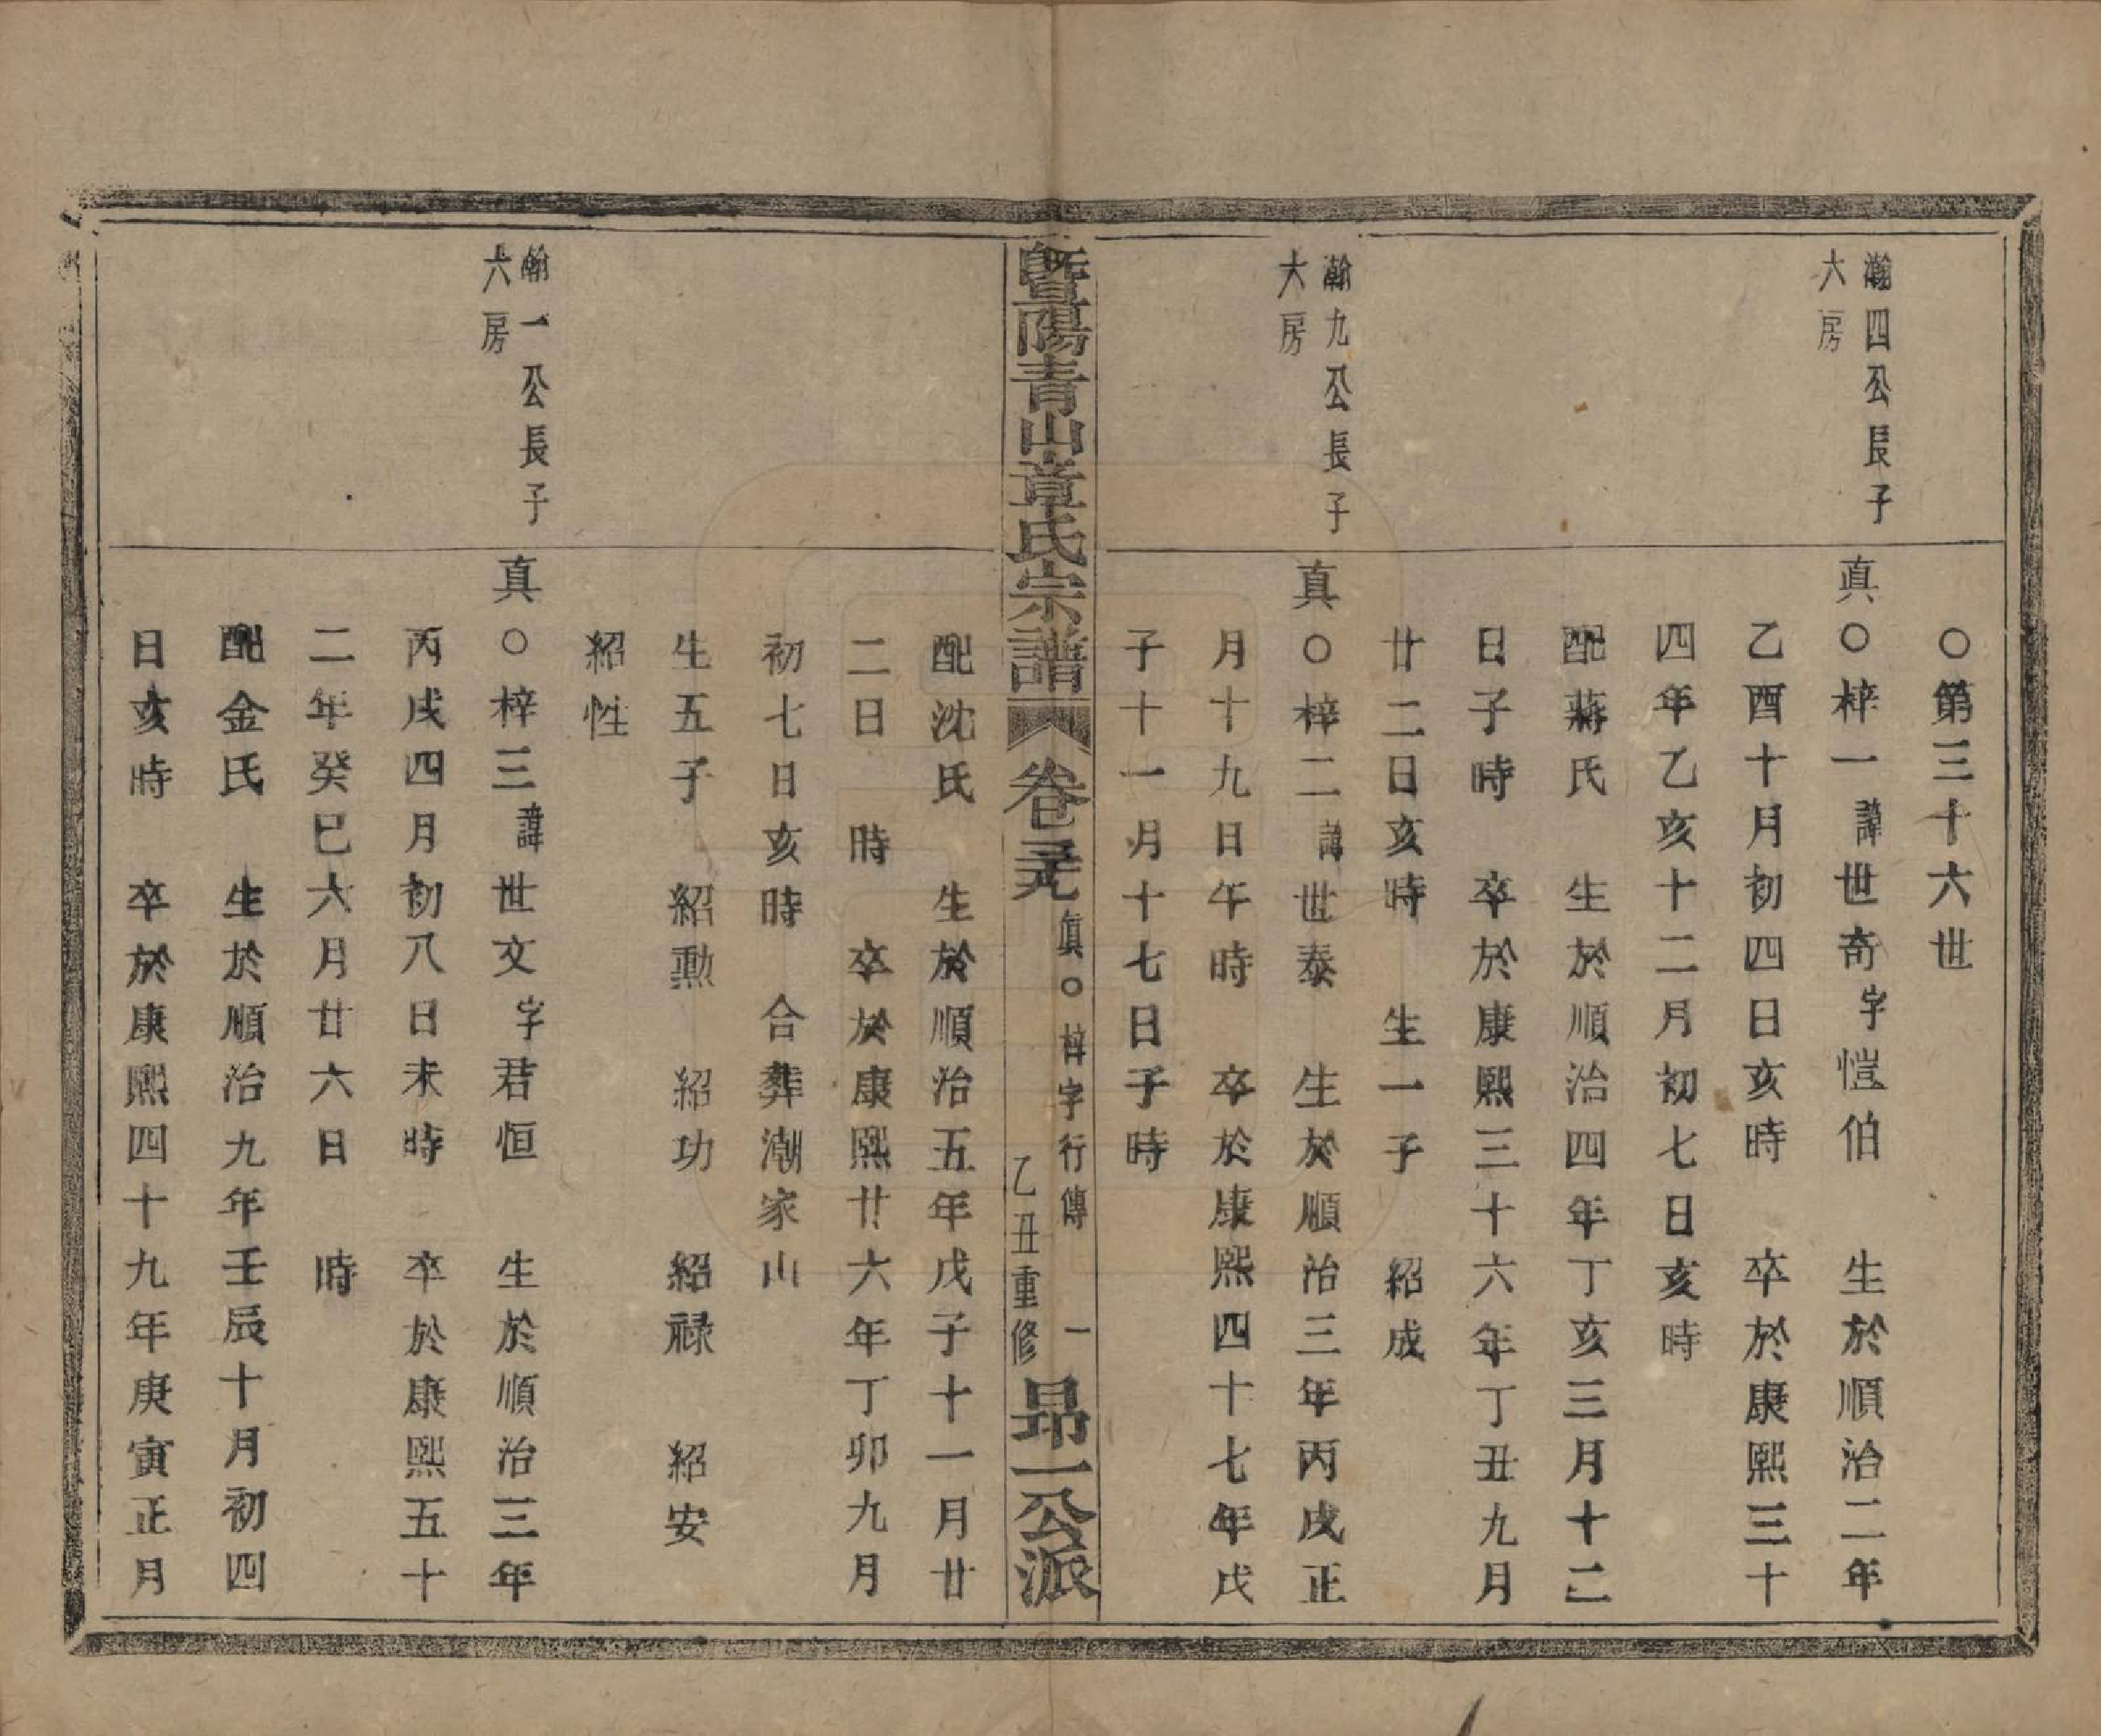 ○第三十六世
瀚四公長子
六房
真○梓一諱世奇字愷伯　生於順治二年
乙酉十月初四日亥時　卒於康熙三十
四年乙亥十二月初七日亥時
配蔣氏　生於順治四年丁亥三月十二
日子時　卒於康熙三十六年丁丑九月
廿二日亥時　生一子　紹成
瀚九公長子
六房
真○梓二諱世泰　生於順治三年丙戌正
月十九日午時　卒於康熙四十七年戊
子十一月十七日子時
暨陽青山章氏宗譜
卷
真○梓字行傳
一
乙丑重修
昂一公派
配沈氏　生於順治五年戊子十一月廿
二日　時　卒於康熙廿六年丁卯九月
初七日亥時　合葬潮家山
生五子　紹勲　紹功　紹禄　紹安
紹性
瀚一公長子
六房
真○梓三諱世文字君恒　生於順治三年
丙戌四月初八日未時　卒於康熙五十
二年癸巳六月廿六日　時
配金氏　生於順治九年壬辰十月初四
日亥時　卒於康熙四十九年庚寅正月